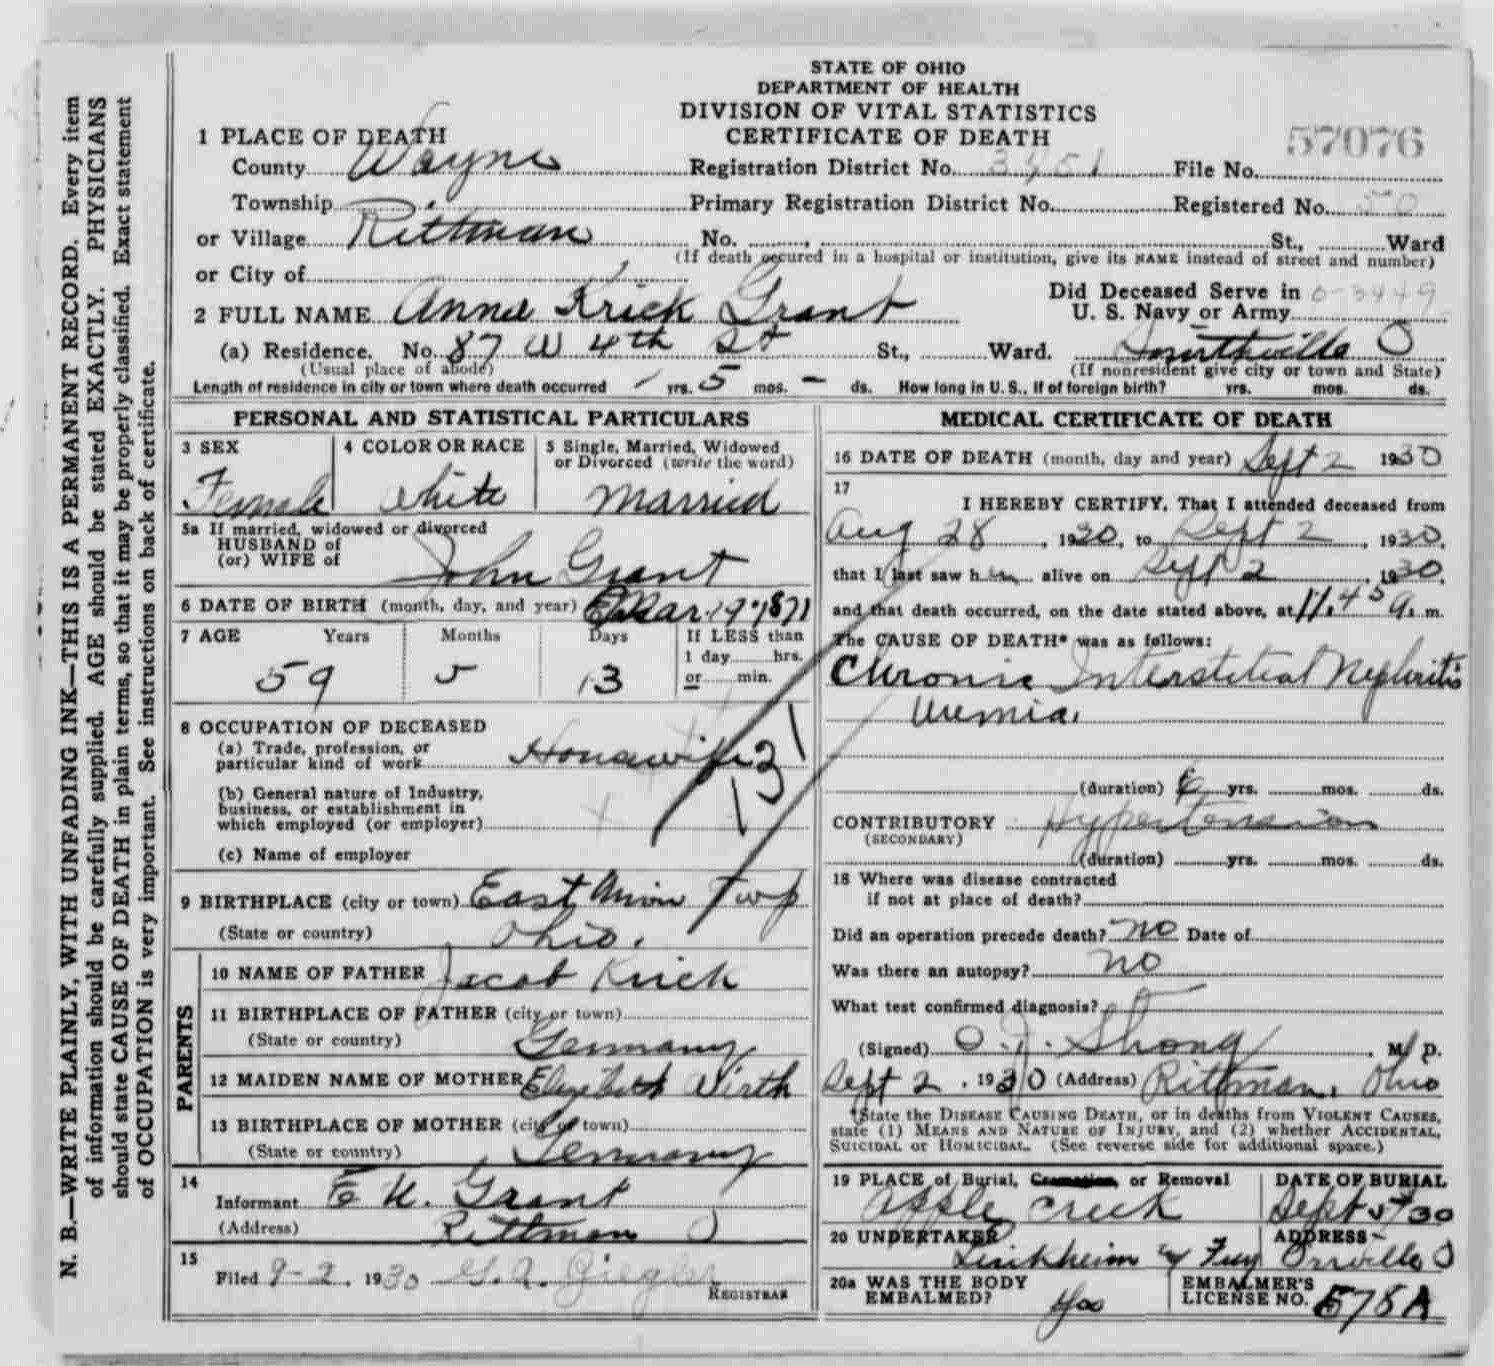 STATE OF OHIO
DEPARTMENT OF HEALTH
DIVISION OF VITAL STATISTICS
CERTIFICATE OF DEATH
57076
1 PLACE OF DEATH
County Wayne Registration District No. 3451 File No.
Township Primary Registration District No. Registered No. 50
or Village Rittman No. St., Ward
(If death occured in a hospital or institution, give its NAME instead of street and number)
or City of
2 FULL NAME Anna Krick Grant
Did Deceased Serve in 0-3449
U. S. Navy or Army
(a) Residence. No. 87 W 4th St St., Ward. Smithville O
(Usual place of abode) (If nonresident give city or town and State)
Length of residence in city or town where death occurred yrs. 5 mos. - ds. How long in U. S., if of foreign birth? yrs. mos. ds.
PERSONAL AND STATISTICAL PARTICULARS
3 SEX
Female
4 COLOR OR RACE
White
5 Single, Married, Widowed
or Divorced (write the word)
Married
5a If married, widowed or divorced
HUSBAND of
(or) WIFE of John Grant
6 DATE OF BIRTH (month, day, and year) Mar 19 1871
7 AGE Years Months Days
59 5 13
If LESS than
1 day hrs.
or min.
8 OCCUPATION OF DECEASED
(a) Trade, profession, or
particular kind of work Housewife
131
(b) General nature of Industry,
business, or establishment in
which employed (or employer)
(c) Name of employer
9 BIRTHPLACE (city or town) East Union Twp
(State or country) Ohio.
PARENTS
10 NAME OF FATHER Jacob Krick
11 BIRTHPLACE OF FATHER (city or town)
(State or country) Germany
12 MAIDEN NAME OF MOTHER Elizabeth Wirth
13 BIRTHPLACE OF MOTHER (city or town)
(State or country) Germany
14
Informant E U. Grant
(Address) Rittman O
15
Filed 9-2, 1930 G. A. Ziegler
REGISTRAR
MEDICAL CERTIFICATE OF DEATH
16 DATE OF DEATH (month, day and year) Sept 2 1930
17
I HEREBY CERTIFY, That I attended deceased from
Aug 28, 1930, to Sept 2, 1930,
that I last saw her alive on Sept 2, 1930,
and that death occurred, on the date stated above, at 11.45 a. m.
The CAUSE OF DEATH* was as follows:
Chronic Interstitial Nephritis
Uremia.
(duration) 6 yrs. mos. ds.
CONTRIBUTORY Hypertension
(SECONDARY)
(duration) yrs. mos. ds.
18 Where was disease contracted
if not at place of death?
Did an operation precede death? no Date of
Was there an autopsy? no
What test confirmed diagnosis?
(Signed) O. J. Shong, M. D.
Sept 2, 1930 (Address) Rittman, Ohio
*State the DISEASE CAUSING DEATH, or in deaths from VIOLENT CAUSES,
state (1) MEANS AND NATURE OF INJURY, and (2) whether ACCIDENTAL,
SUICIDAL or HOMICIDAL. (See reverse side for additional space.)
19 PLACE of Burial, Cremation, or Removal
Apple Creek
DATE OF BURIAL
Sept 5 30
20 UNDERTAKER
ADDRESS
Orrville O
20a WAS THE BODY
EMBALMED? Yes
EMBALMER'S
LICENSE NO. 578A
N. B.—WRITE PLAINLY, WITH UNFADING INK—THIS IS A PERMANENT RECORD. Every item
of information should be carefully supplied. AGE should be stated EXACTLY. PHYSICIANS
should state CAUSE OF DEATH in plain terms, so that it may be properly classified. Exact statement
of OCCUPATION is very important. See instructions on back of certificate.